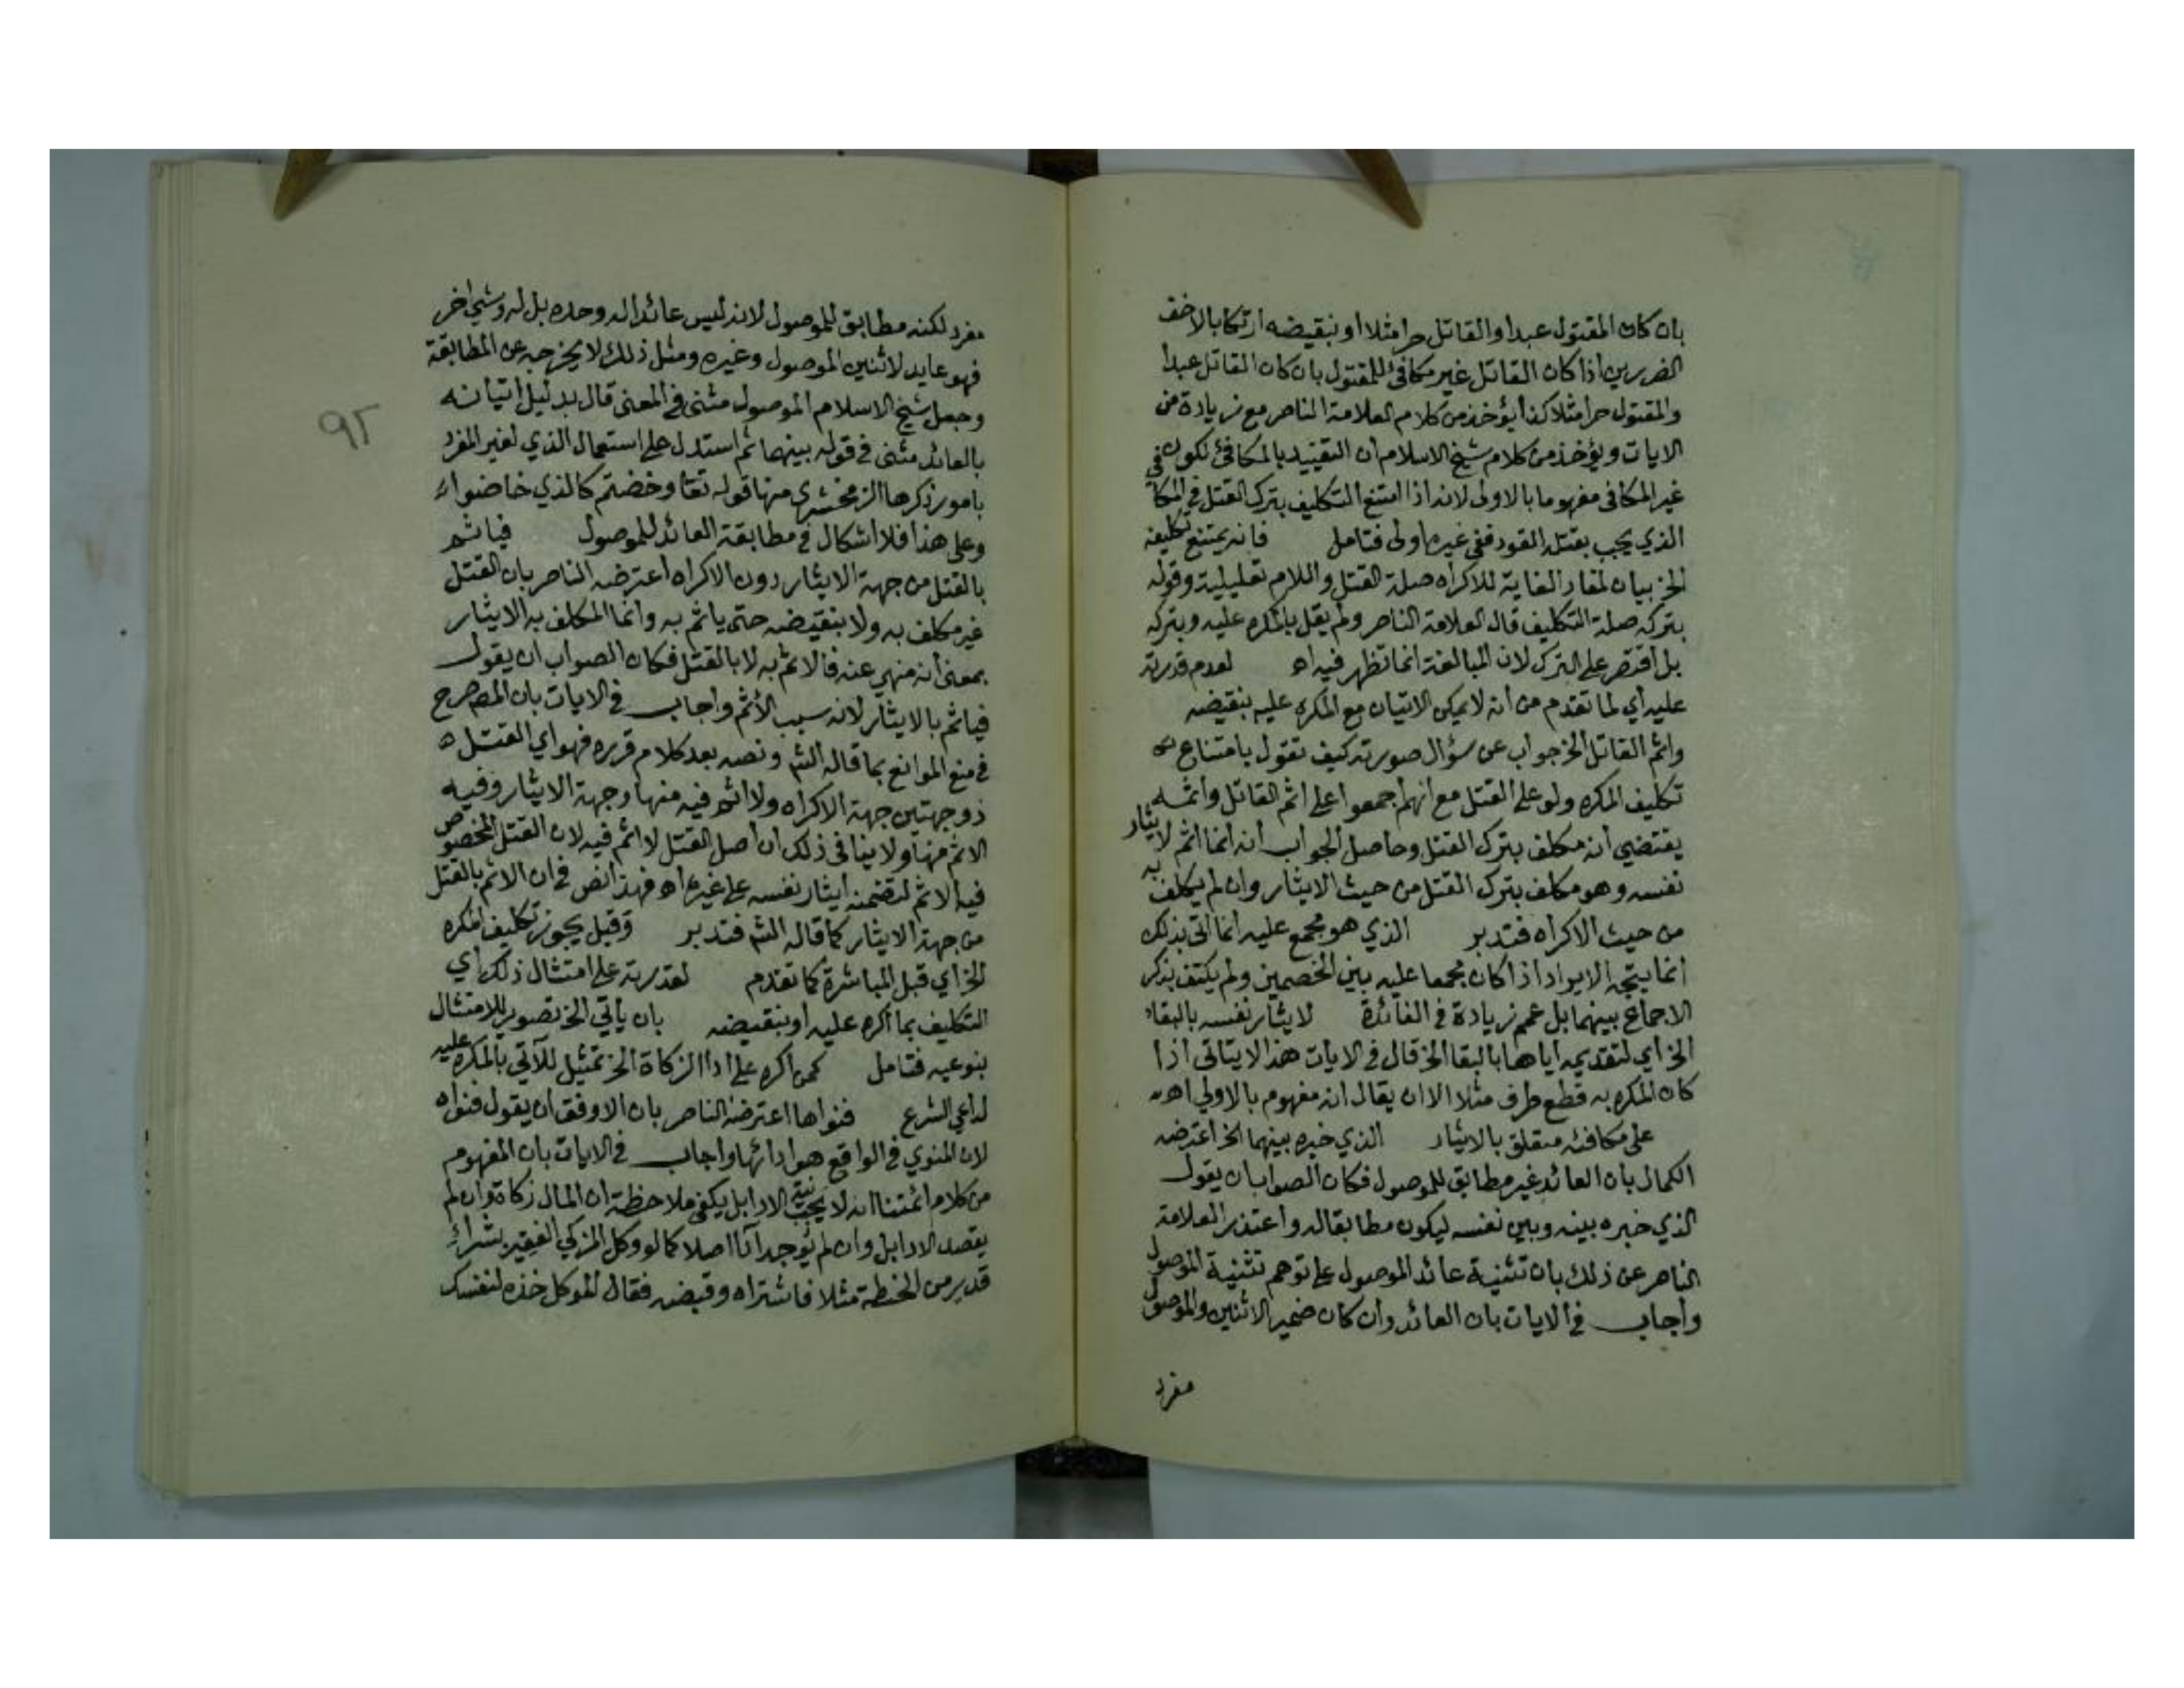 بان كان المقتول عبدا والقاتل حرا مثلا او بنقيضه ارتكابا لاخف
الضررين اذا كان القاتل غير مكافئ للمقتول بان كان القاتل عبدا
والمقتول حرا مثلا كذا يؤخذ من كلام العلامة الناصر مع زيادة من
الايات ويؤخذ من كلام شيخ الاسلام ان التقييد بالمكافئ لكون في
غير المكافى مفهوما بالاولى لانه اذا امتنع التكليف بترك القتل في المكا
الذي يجب بقتله القود ففي غيره اولى فتامل فانه يمتنع تكليفه
الخ بيان لمفاد الغاية للاكراه صلة القتل واللام تعليلية وقوله
بتركه صلة التكليف قال العلامة الناصر ولم يقل بالمكره عليه وبتركه
بل اقتصر على الترك لان المبالغة انما تظهر فيه اه لعدم قدرته
عليه اي لما تقدم من انه لا يمكن الاتيان مع المكره عليه بنقيضه
واثم القاتل الخ جواب عن سؤال صورته كيف تقول بامتناع
تكليف المكره ولو على القتل مع انهم اجمعوا على اثم القاتل واثمه
يقتضي انه مكلف بترك القتل وحاصل الجواب انه انما اثم لايثار
نفسه وهو مكلف بترك القتل من حيث الايثار وان لم يكلف به
من حيث الاكراه فتدبر الذي هو مجمع عليه انما اتى بذلك
انما يتجه الايراد اذا كان مجمعا عليه بين الخصمين ولم يكتف بذكر
الاجماع بينهما بل عمم زيادة في الفائدة لايثار نفسه بالبقاء
الخ اي لتقديمه اياها بالبقا الخ قال في الايات هذا لا يتاتى اذا
كان المكره به قطع طرف مثلا الا ان يقال انه مفهوم بالاولى اه
على مكافئه متعلق بالايثار الذي خيره بينهما الخ اعترضه
الكمال بان العائد غير مطابق للموصول فكان الصواب ان يقول
الذي خيره بينه وبين نفسه ليكون مطابقا له واعتذر العلامة
الناصر عن ذلك بان تثنية عائد الموصول على توهم تثنية الموصول
واجاب في الايات بان العائد وان كان ضمير الاثنين والموصول
مفرد
٩٢
مفرد لكنه مطابق للموصول لانه ليس عائدا له وحده بل له وشيء اخر
فهو عايد لاثنين الموصول وغيره ومثل ذلك لا يخرجه عن المطابقة
وجعل شيخ الاسلام الموصول مثنى في المعنى قال بدليل اتيانه
بالعائد مثنى في قوله بينهما ثم استدل على استعمال الذي لغير المفرد
بامور ذكرها الزمخشري منها قوله تعا وخضتم كالذي خاضوا اه
وعلى هذا فلا اشكال في مطابقة العائد للموصول فياثم
بالقتل من جهة الايثار دون الاكراه اعترضه الناصر بان القتل
غير مكلف به ولا بنقيضه حتى ياثم به وانما المكلف به الايثار
بمعنى انه منهي عنه فالاثم به لا بالقتل فكان الصواب ان يقول
فياثم بالايثار لانه سبب الاثم واجاب في الايات بان المص صرح
في منع الموانع بما قاله الش ونصه بعد كلام قرره فهو اي القتل
ذو جهتين جهة الاكراه ولا اثم فيه منها وجهة الايثار وفيه
الاثم منها ولا ينافي ذلك ان اصل القتل لا اثم فيه لان القتل المخصوص
فيه الاثم لتضمنه ايثار نفسه على غيره اه فهذا نص في ان الاثم بالقتل
من جهة الايثار كما قاله الش فتدبر وقيل يجوز تكليف المكره
الخ اي قبل المباشرة كما تقدم لقدرته على امتثال ذلك اي
التكليف بما اكره عليه او بنقيضه بان ياتي الخ تصوير للامتثال
بنوعيه فتامل كمن اكره على اداء الزكاة الخ تمثيل للآتي بالمكره عليه
لداعي الشرع فنواها اعترضه الناصر بان الاوفق ان يقول فنواه
لان المنوي في الواقع هو ادائها واجاب في الايات بان المفهوم
من كلام ائمتنا انه لا يجب نية الادا بل يكفي ملاحظة ان المال زكاة وان لم
يقصد الادا بل وان لم يوجد ادا اصلا كما لو وكل المزكي الفقير بشراء
قدر من الحنطة مثلا فاشتراه وقبضه فقال الموكل خذه لنفسك